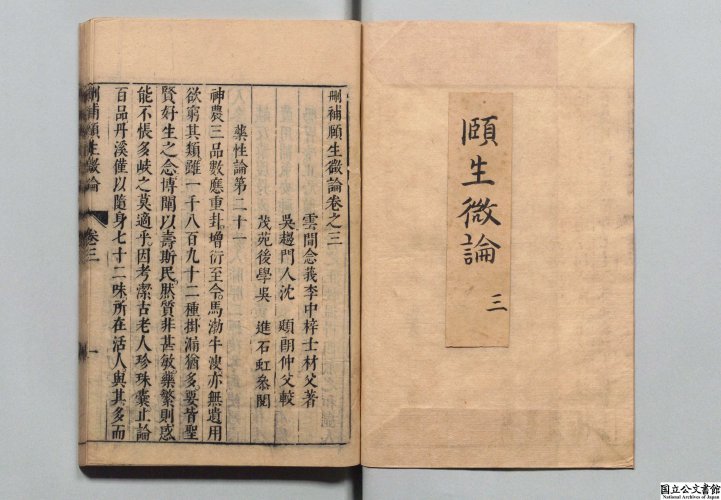 頤生微論
三
刪補頤生微論卷之三
雲間念莪李中梓士材父著
吳趨門人沈頲朗仲父較
茂苑後學吳進石虹叅閱
藥性論第二十一
神農三品數應重卦增衍至今馬渤牛溲亦無遺用
欲窮其類雖一千八百九十二種掛漏猶多要皆聖
賢好生之念博闡以壽斯民肰質非甚敏藥繁則惑
能不悵多岐之莫適乎因考潔古老人珍珠囊止論
百品丹溪僅以隨身七十二味所在活人與其多而
刪補頤生微論
卷三
一
国立公文書館
National Archives of Japan